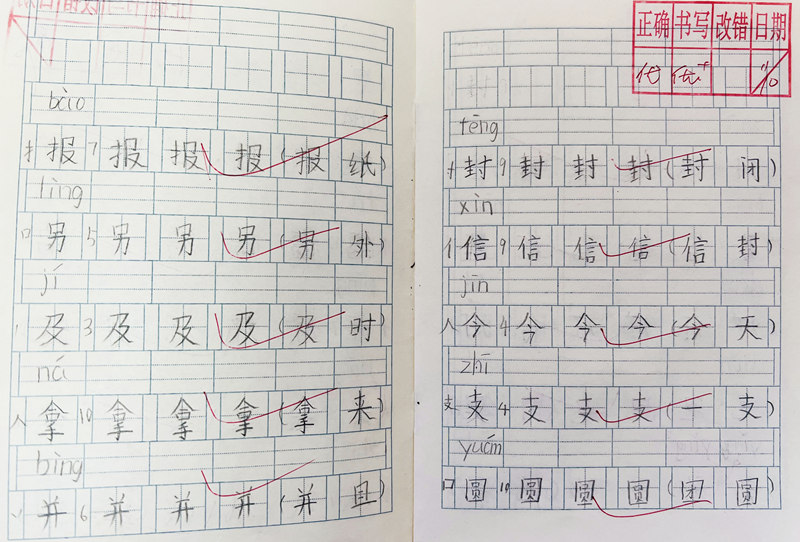 bào
扌报7报报报(报纸)
lìng
口另5另另另(另外)
jí
丿及3及及及(及时)
ná
人拿10拿拿拿(拿来)
bìng
丷并6并并并(并且)
正确 书写 改错 日期
优 优+
fēng
寸封9封封封(封闭)
xìn
亻信9信信信(信封)
jīn
人今4今今今(今天)
zhī
支支4支支支(一支)
yuán
口圆10圆圆圆(团圆)